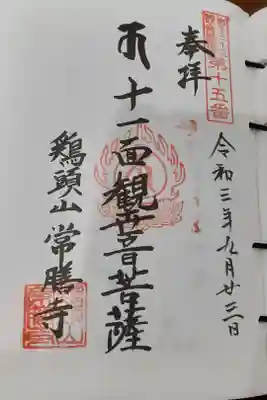 第十五番
奉拝
令和三年九月廿三日
十一面観世音菩薩
鶏頭山常勝寺